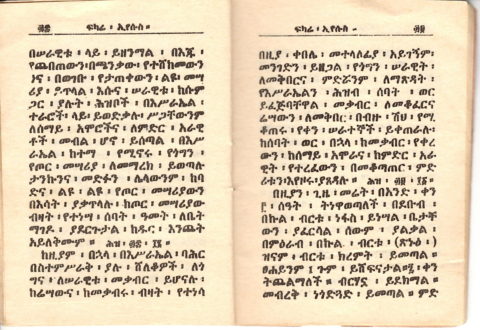 ፴፰ ፍካሬ ፡ ኢየሱስ ።
በሠራዊቱ ፡ ላይ ፡ ይዘንማል ፡ በእጁ ፡
የጨበጠውን፡በጫንቃው፡የተሸከመውን
ንና ፡ በወገቡ ፡ የታጠቀውን ፡ ልዩ፡ መሣ
ሪያ ፡ ይጥላል ፡ እሱና ፡ ሠራዊቱ ፡ ከሱም
ጋር ፡ ያሉት ፡ ሕዝቦች ፡ በእሥራኤል፡
ተራሮች፡ ላይ፡ ይወድቃሉ፡ ሥጋቸውንም
ለሰማይ ፡ አሞሮችና ፡ ለምድር ፡ አራዊ
ቶች ፡ መብል ፡ ሆኖ ፡ ይሰጣል ፡ በእሥ
ራኤል ፡ ከተማ ፡ የሚኖሩ ፡ የጎግን ፡
የጦር ፡ መሣሪያ ፡ ለመማረክ ፡ ይወጣሉ፡
ታንኩንና ፡ መድፉን ፡ ሌላውንም ፡ ከባ
ድና ፡ ልዩ ፡ ልዩ ፡ የጦር ፡ መሣሪያውን
በእሳት ፡ ያቃጥላሉ ፡ ከጦር ፡ መሣሪያው
ብዛት ፡ የተነሣ ፡ ሰባት ፡ ዓመት ፡ ለቤት
ማገዶ ፡ ያደርጉታል ፡ ከዱር ፡ እንጨት
አይለቅሙም ።
ከዚያም ፡ በኋላ ፡ በእሥራኤል ፡ ባሕር
በስተምሥራቅ ፡ ያሉ ፡ ሸለቆዎች ፡ ለጎ
ግና ፡ ለሠራዊቱ ፡ መቃብር ፡ ይሆናሉ፡
ከሬሣውና ፡ ከመቃብሩ ፡ ብዛት ፡ የተነሳ
ፍካሬ ፡ ኢየሱስ ። ፴፱
በዚያ ፡ ቀበሌ ፡ መተላለፊያ ፡ አይገኝም፡
መንገድን ፡ ይዘጋል ፡ የጎግን ፡ ሠራዊት፡
ለመቅበርና ፡ ምድሯንም ፡ ለማጽዳት ፡
የእሥራኤልን ፡ ሕዝብ ፡ ሰባት ፡ ወር
ይፈጅባቸዋል ፡ መቃብር ፡ ለመቆፈርና
ሬሣውን ፡ ለመቅበር፡
ቆጠሩ ፡ የቀን ፡ ሠራተኞች ፡ ይቀጠራሉ፡
ከሰባት ፡ ወር ፡ በኋላ ፡ ከመቃብር ፡ የቀረ
ውን ፡ ከሰማይ ፡ አሞራና ፡ ከምድር ፡ አራ
ዊት ፡ የተረፈውን ፡ በመቆጣጠር ፡ ምድ
ሪቱን፡እየዞሩ፡ያጸዳሉ ።
በዚያን ፡ ጊዜ ፡ መሬት ፡ በአንድ ፡ ቀን
ሰዓት ፡ ትነዋወጣለች ፡ በደቡብ ፡
በኩል ፡ ብርቱ ፡ ነፋስ ፡ ይነሣል ፡ ቤታቸ
ውን ፡ ያፈርሳል ፡ ሰውም ፡ ያልቃል
በምዕራብ ፡ በኩል ፡ ብርቱ ፡ (ጽኑዕ)
ዝናም ፡ ብርቱ ፡ ክረምት ፡ ይመጣል ።
ፀሐይንም ፡ ፤ ጉም ፡ ይሸፍናታል፡ ቀን
ትጨልማለች ። ብርሃኗ ፡ ይደክማል ።
መብረቅ ፡ ነጎድጓድ ፡ ይመጣል ። ምድ